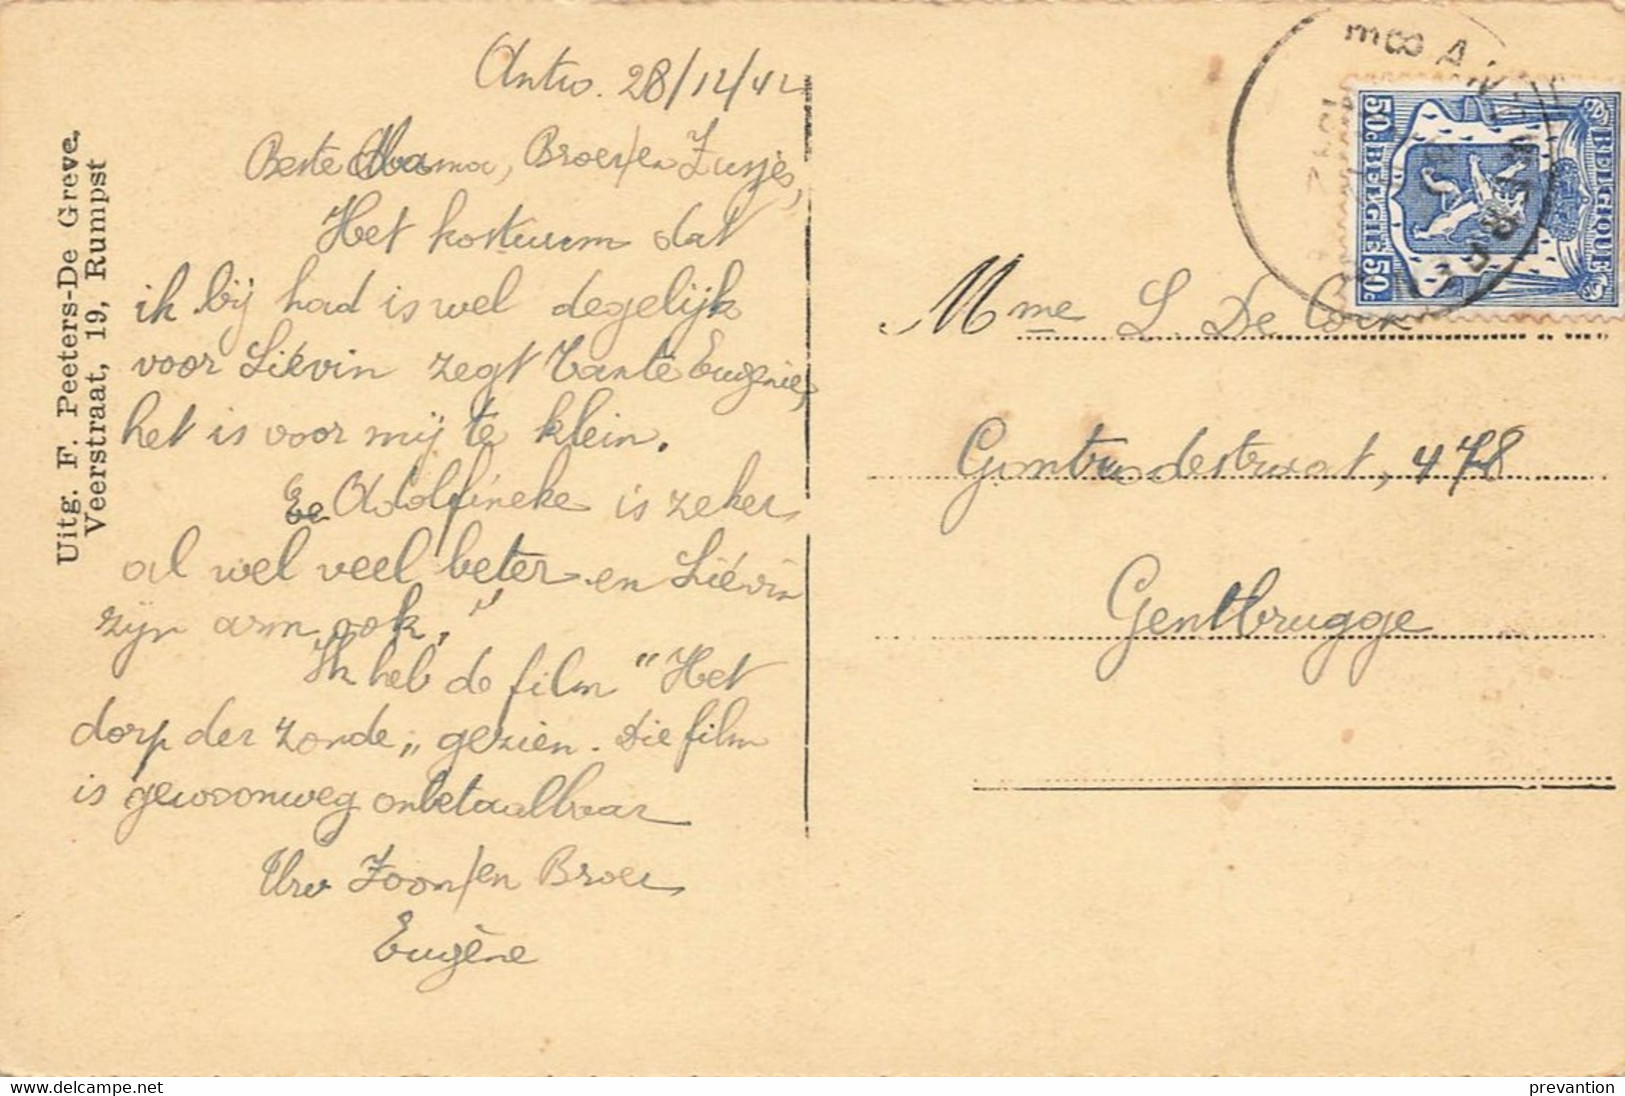 Uitg. F. Peeters-De Greve.
Veerstraat, 19, Rumpst
Antw. 28/12/42
Beste Mama, Broer/en Zusjes,
Het kostuum dat
ik bij had is wel degelijk
voor Liévin zegt Tante Eugenie,
het is voor mij te klein.
Adolfineke is zeker
al wel veel beter en Liévin
zijn arm ook.
Ik heb de film "Het
dorp der zonde„ gezien. Die film
is gewoonweg onbetaalbaar
Uw Zoon/en Broer
Eugène
BELGIQUE
BELGIE
50c 50c
Mme L. De Cock
Gontrodestraat, 478
Gentbrugge
delcampe.net
prevantion